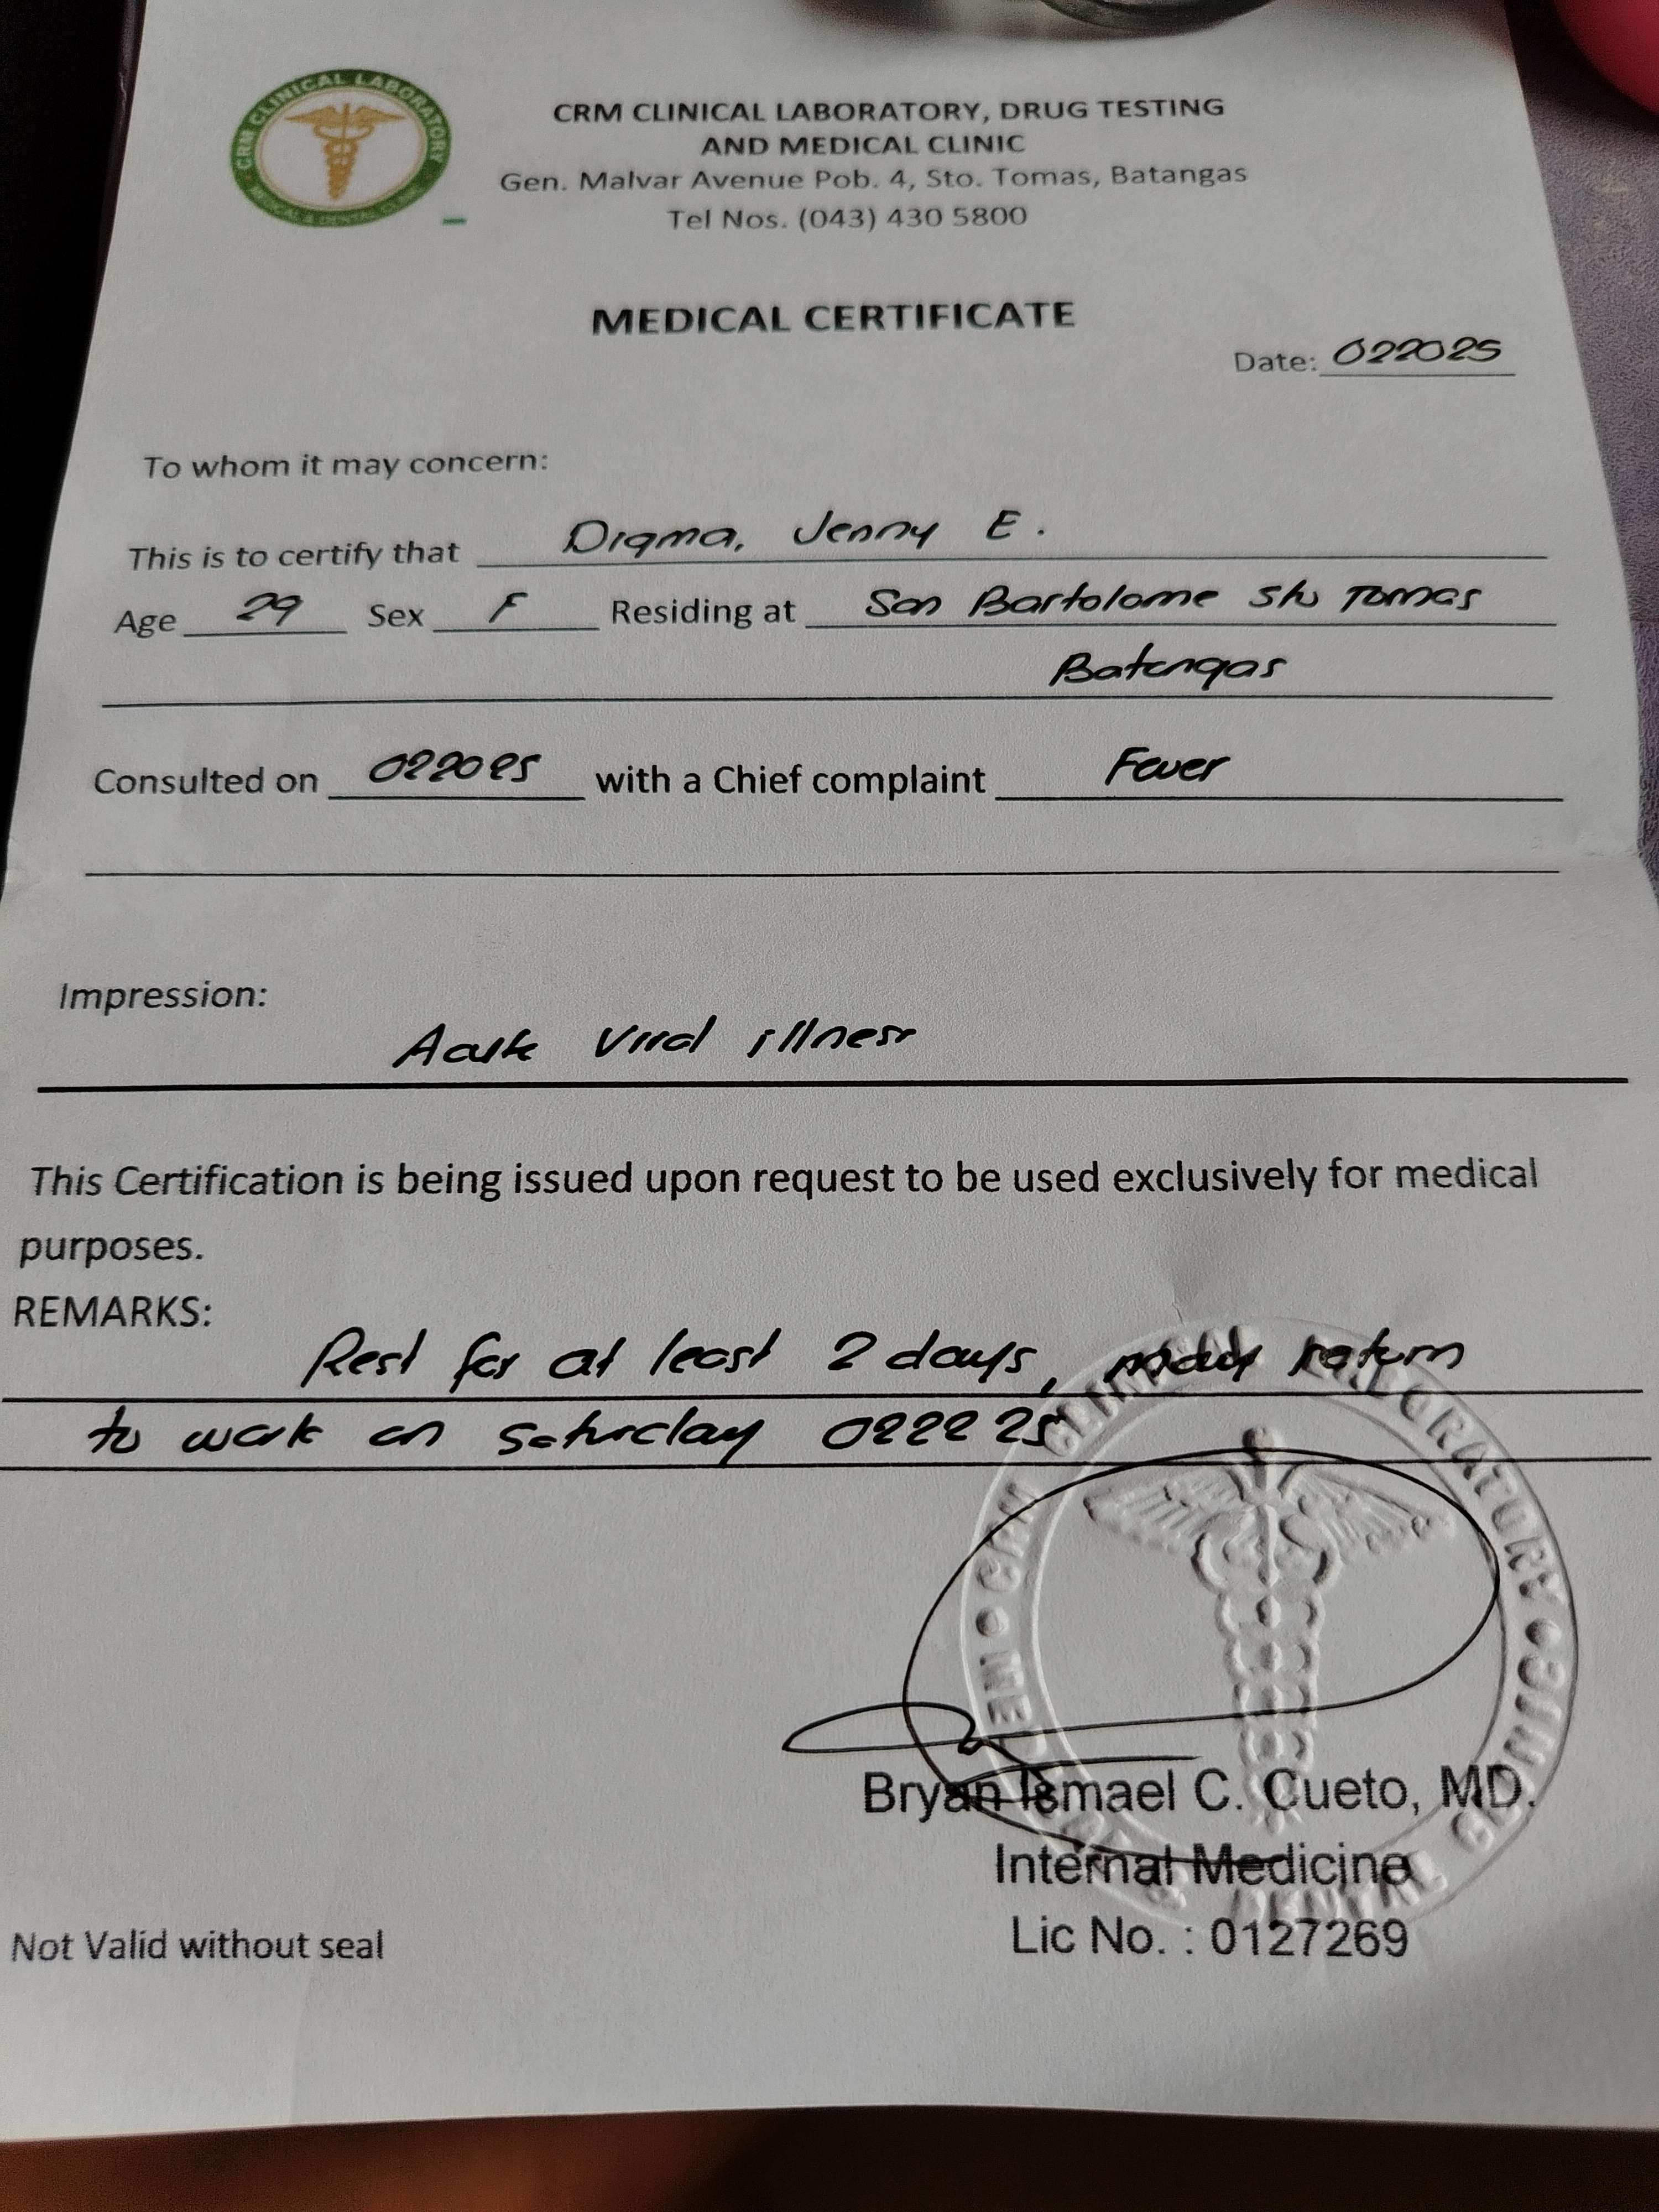 CRM CLINICAL LABORATORY
MEDICAL & DENTAL CLINIC
CRM CLINICAL LABORATORY, DRUG TESTING
AND MEDICAL CLINIC
Gen. Malvar Avenue Pob. 4, Sto. Tomas, Batangas
Tel Nos. (043) 430 5800
MEDICAL CERTIFICATE
Date: 022025
To whom it may concern:
This is to certify that Digma, Jenny E.
Age 29 Sex F Residing at San Bartolome Sto Tomas
Batangas
Consulted on 022025 with a Chief complaint Fever
Impression:
Acute Viral illness
This Certification is being issued upon request to be used exclusively for medical
purposes.
REMARKS:
Rest for at least 2 days, may return
to work on Saturday 022225
CRM CLINICAL LABORATORY
DENTAL CLINIC
Bryan Ismael C. Cueto, MD.
Internal Medicine
Lic No. : 0127269
Not Valid without seal